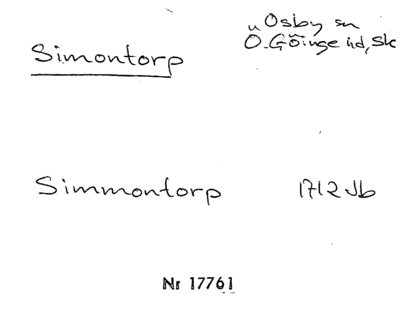 Osby sn
Simontorp
Ö. Göinge hd, Sk
Simmontorp 1712 Jb
Nr 17761